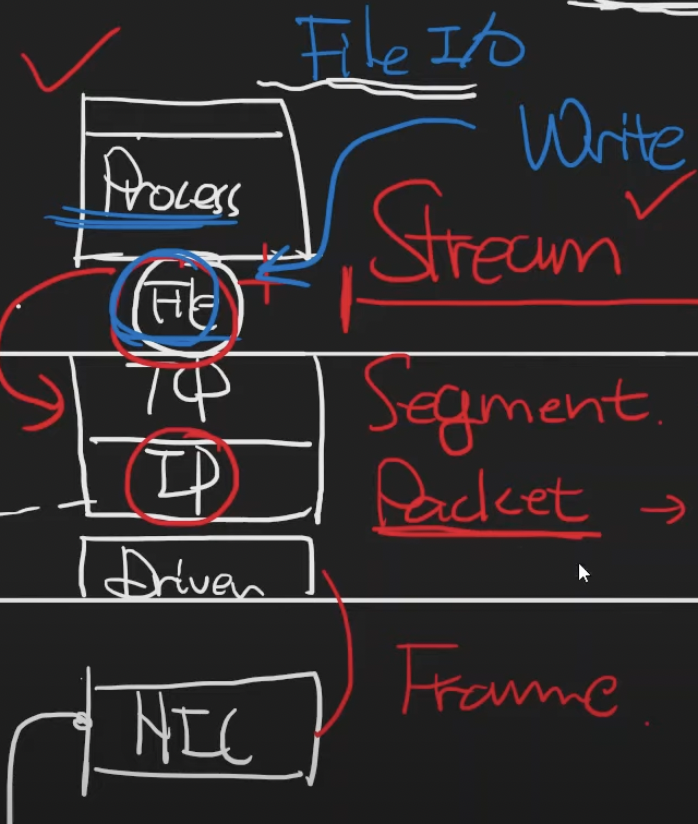 File I/O
Write
Process
Stream
File
TCP
Segment.
IP
Packet →
Driver
Frame.
NIC